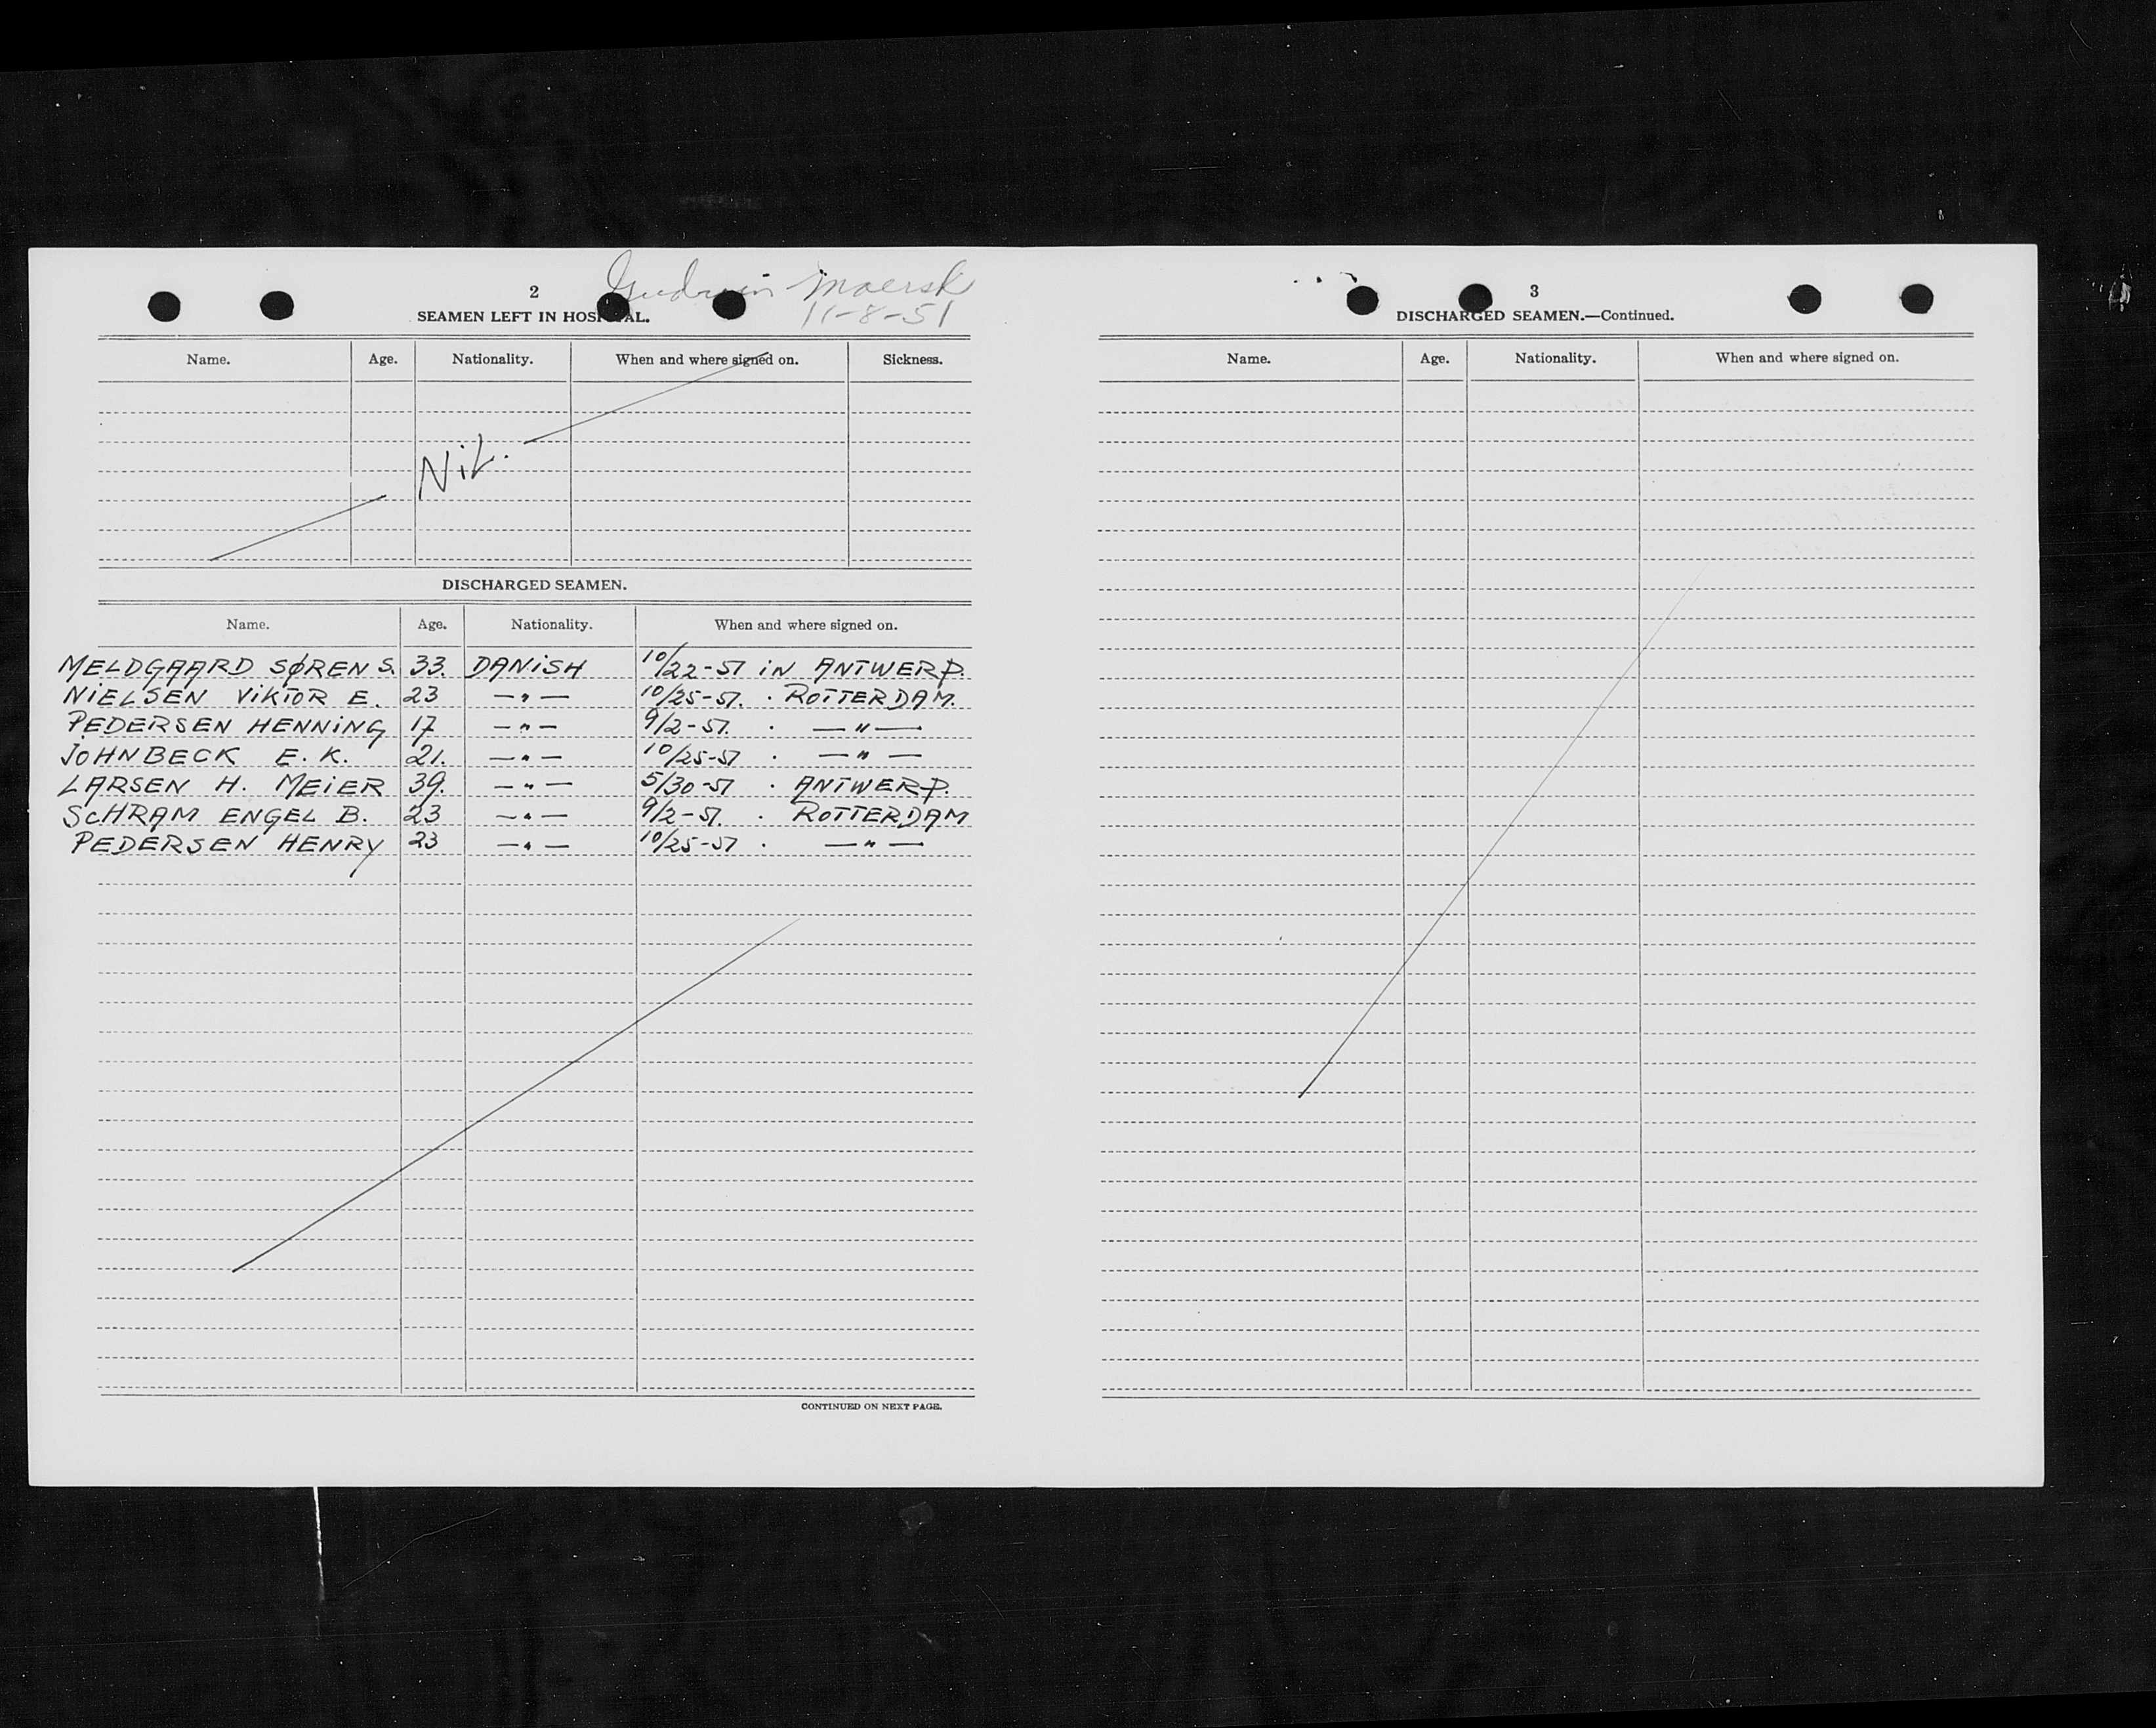 Gudrun Maersk
11-8-51
2
SEAMEN LEFT IN HOSPITAL.
Name. Age. Nationality. When and where signed on. Sickness.
NiL.
DISCHARGED SEAMEN.
Name. Age. Nationality. When and where signed on.
MELDGAARD SØREN S. 33. DANiSH 10/22-51 iN ANTWERP.
NiELSEN ViKTOR E. 23 —"— 10/25-51. · ROTTERDAM.
PEDERSEN HENNiNG 17 —"— 9/2-51. · —"—
JOHNBECK E. K. 21. —"— 10/25-51 · —"—
LARSEN H. MEiER 39. —"— 5/30-51 · ANTWERP.
SCHRAM ENGEL B. 23 —"— 9/2-51. · ROTTERDAM
PEDERSEN HENRY 23 —"— 10/25-51 · —"—
CONTINUED ON NEXT PAGE.
3
DISCHARGED SEAMEN.—Continued.
Name. Age. Nationality. When and where signed on.